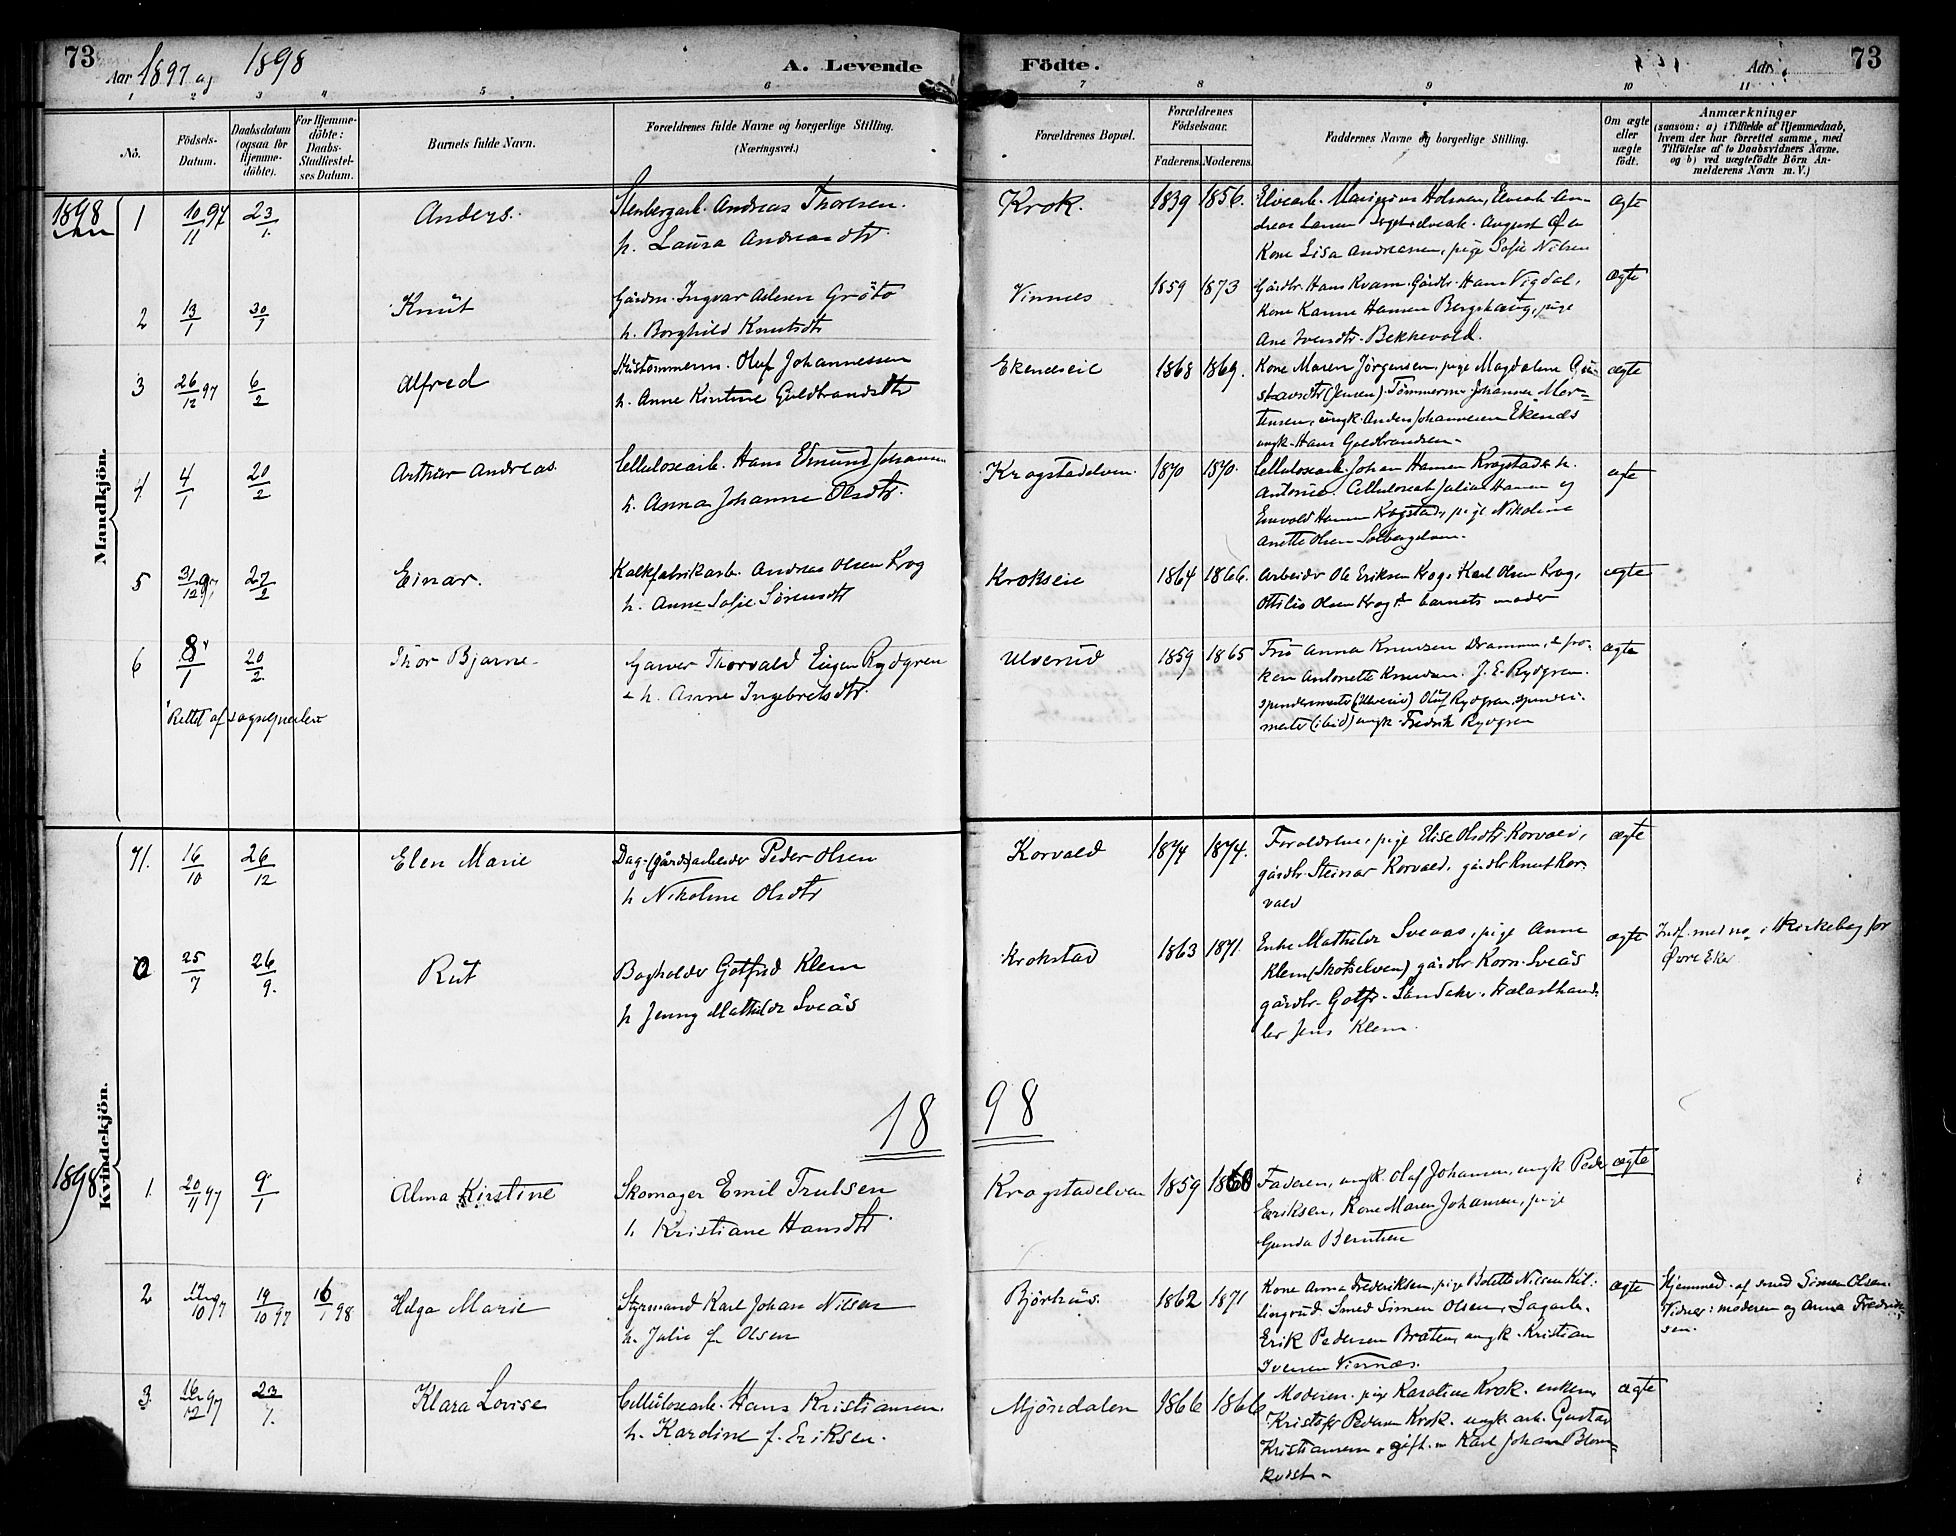 73
Aar 1897 og 1898
A. Levende Födte.
Adr.
73
1 2 3 4 5 6 7 8 9 10 11
No.
Födsels-
Datum.
Daabsdatum
(ogsaa for
Hjemme-
döbte).
For Hjemme-
döbte:
Daabs-
Stadfæstel-
ses Datum.
Barnets fulde Navn.
Forældrenes fulde Navne og borgerlige Stilling.
(Næringsvei.)
Forældrenes Bopæl.
Forældrenes
Födselsaar.
Faderens. Moderens.
Faddernes Navne og borgerlige Stilling.
Om ægte
eller
uægte
födt.
Anmærkninger
(saasom: a) i Tilfælde af Hjemmedaab,
hvem der har forrettet samme, med
Tilföielse af to Daabsvidners Navne,
og b) ved uægtefödte Börn An-
melderens Navn m. V.)
Mandkjön.
1898
1 10/11 97 23/1 Anders.
Andreas Thoresen.
h. Laura Andreasdtr.
Krok. 1839 1856.
Kone Lisa Andresen, pige Sofie Nilsen
ægte
2 13/1 30/1 Knut
Gårdm. Ingvar Aslesen Gröto
h. Borghild Knutsdtr
Vinnes 1859 1873
Gårdbr. Hans Kvam. Gårdbr. Hans Vigdal,
Kone Kanne Hansen Bergshaug, pige
Ane Iversdtr. Bekkevold.
ægte
3 26/12 97 6/2 Alfred
Oluf Johannessen
h. Anne Kirstine Guldbrandsdtr
Ekenæseie 1868 1869.
Kone Maren Jörgensen, pige Magdalene Gu-
stavsdtr (Jensen) Tömmerm. Johannes Mor-
tensen, ungk. Anders Johannesen Ekenæs
ungk. Hans Guldbrandsen.
ægte
4 4/1 20/2 Arthur Andreas.
Cellulosearb. Hans Edmund Johansen
h. Anna Johanne Olsdtr.
Krogstadelven. 1870 1870.
Cellulosearb. Johan Hansen Krogstad & h.
Antonie. Cellulosearb. Julius Hansen og
Enevold Hansen Krogstad, pige Nikoline
Anette Olsen Solbergelven.
ægte
5 31/12 97 27/2 Einar.
Kalkfabrikarb. Andreas Olsen Krog
h. Anne Sofie Sörensdtr
Krokseie 1864 1866.
Arbeider Ole Eriksen Krog, Karl Olsen Krog,
Ottilie Olsen Krog & barnets moder
ægte
6 8/1 20/2 Thor Bjarne
Garver Thorvald Eugen Rydgren
& h. Anne Ingebretsdtr.
Ulverud 1859 1865
Fru Anna Knudsen Drammen, frö-
ken Antonette Knudsen. J. E. Rydgren.
spindermester (Ulverud) Oluf Rydgren spinder-
mester (ibid) ungk. Fredrik Rydgren
ægte
Rettet af sogneprælat
Kvindekjön.
71. 16/10 26/12 Elen Marie
Dag-(gårds)arbeider Peder Olsen
h Nikoline Olsdtr
Korvald 1874 1874.
Forældrene, pige Elise Olsdtr Korvald,
gårdbr. Steinar Korvald, gårdbr Knut Kor-
vald
ægte
0 25/7 26/9. Rut
Bogholder Gotfred Klem
h Jenny Mathilde Sveås
Krokstad 1863 1871.
Enke Mathilde Sveaas, pige Anne
Klem (Skotselven) gårdbr Korn. Sveås
gårdbr. Gotfr. Sandaker. Trælasthand-
ler Jens Klem.
ægte
Indf. med no i Kirkebog for
Øvre Eker
18 98
1898
1. 20/11 97 9/1 Alma Kirstine
Skomager Emil Trulsen
h. Kristiane Hansdtr
Krogstadelven 1859 1860
Faderen, ungk. Olaf Johansen, ungk Peder
Eriksen, Kone Maren Johansen, pige
Gunda Berntsen
ægte
2 17/10 97 19/10 97 16/1 98 Helga Marie
Styrmand Karl Johan Nilsen
h. Julie f. Olsen
Björhus. 1862 1871
Kone Anna Frederiksen, pige Bolette Nilsen Kil-
lingrud Smed Simen Olsen, Sagarb.
Erik Pedersen Bråten, ungk. Kristian
Iversen Vinnæs.
ægte
Hjemmed. af smed Simen Olsen.
Vidner: moderen og Anna Fredrik-
sen.
3. 16/12 97 23/1. Klara Lovise
Cellulosearb. Hans Kristiansen.
h. Karoline f. Eriksen.
Mjöndalen 1866 1866
Moderen. pige Karoline Krok. enkem.
Kristoffer Pedersen Krok. ungk. arb. Gustav
Kristiansen & gift. m Karl Johan Blom-
kvist
ægte